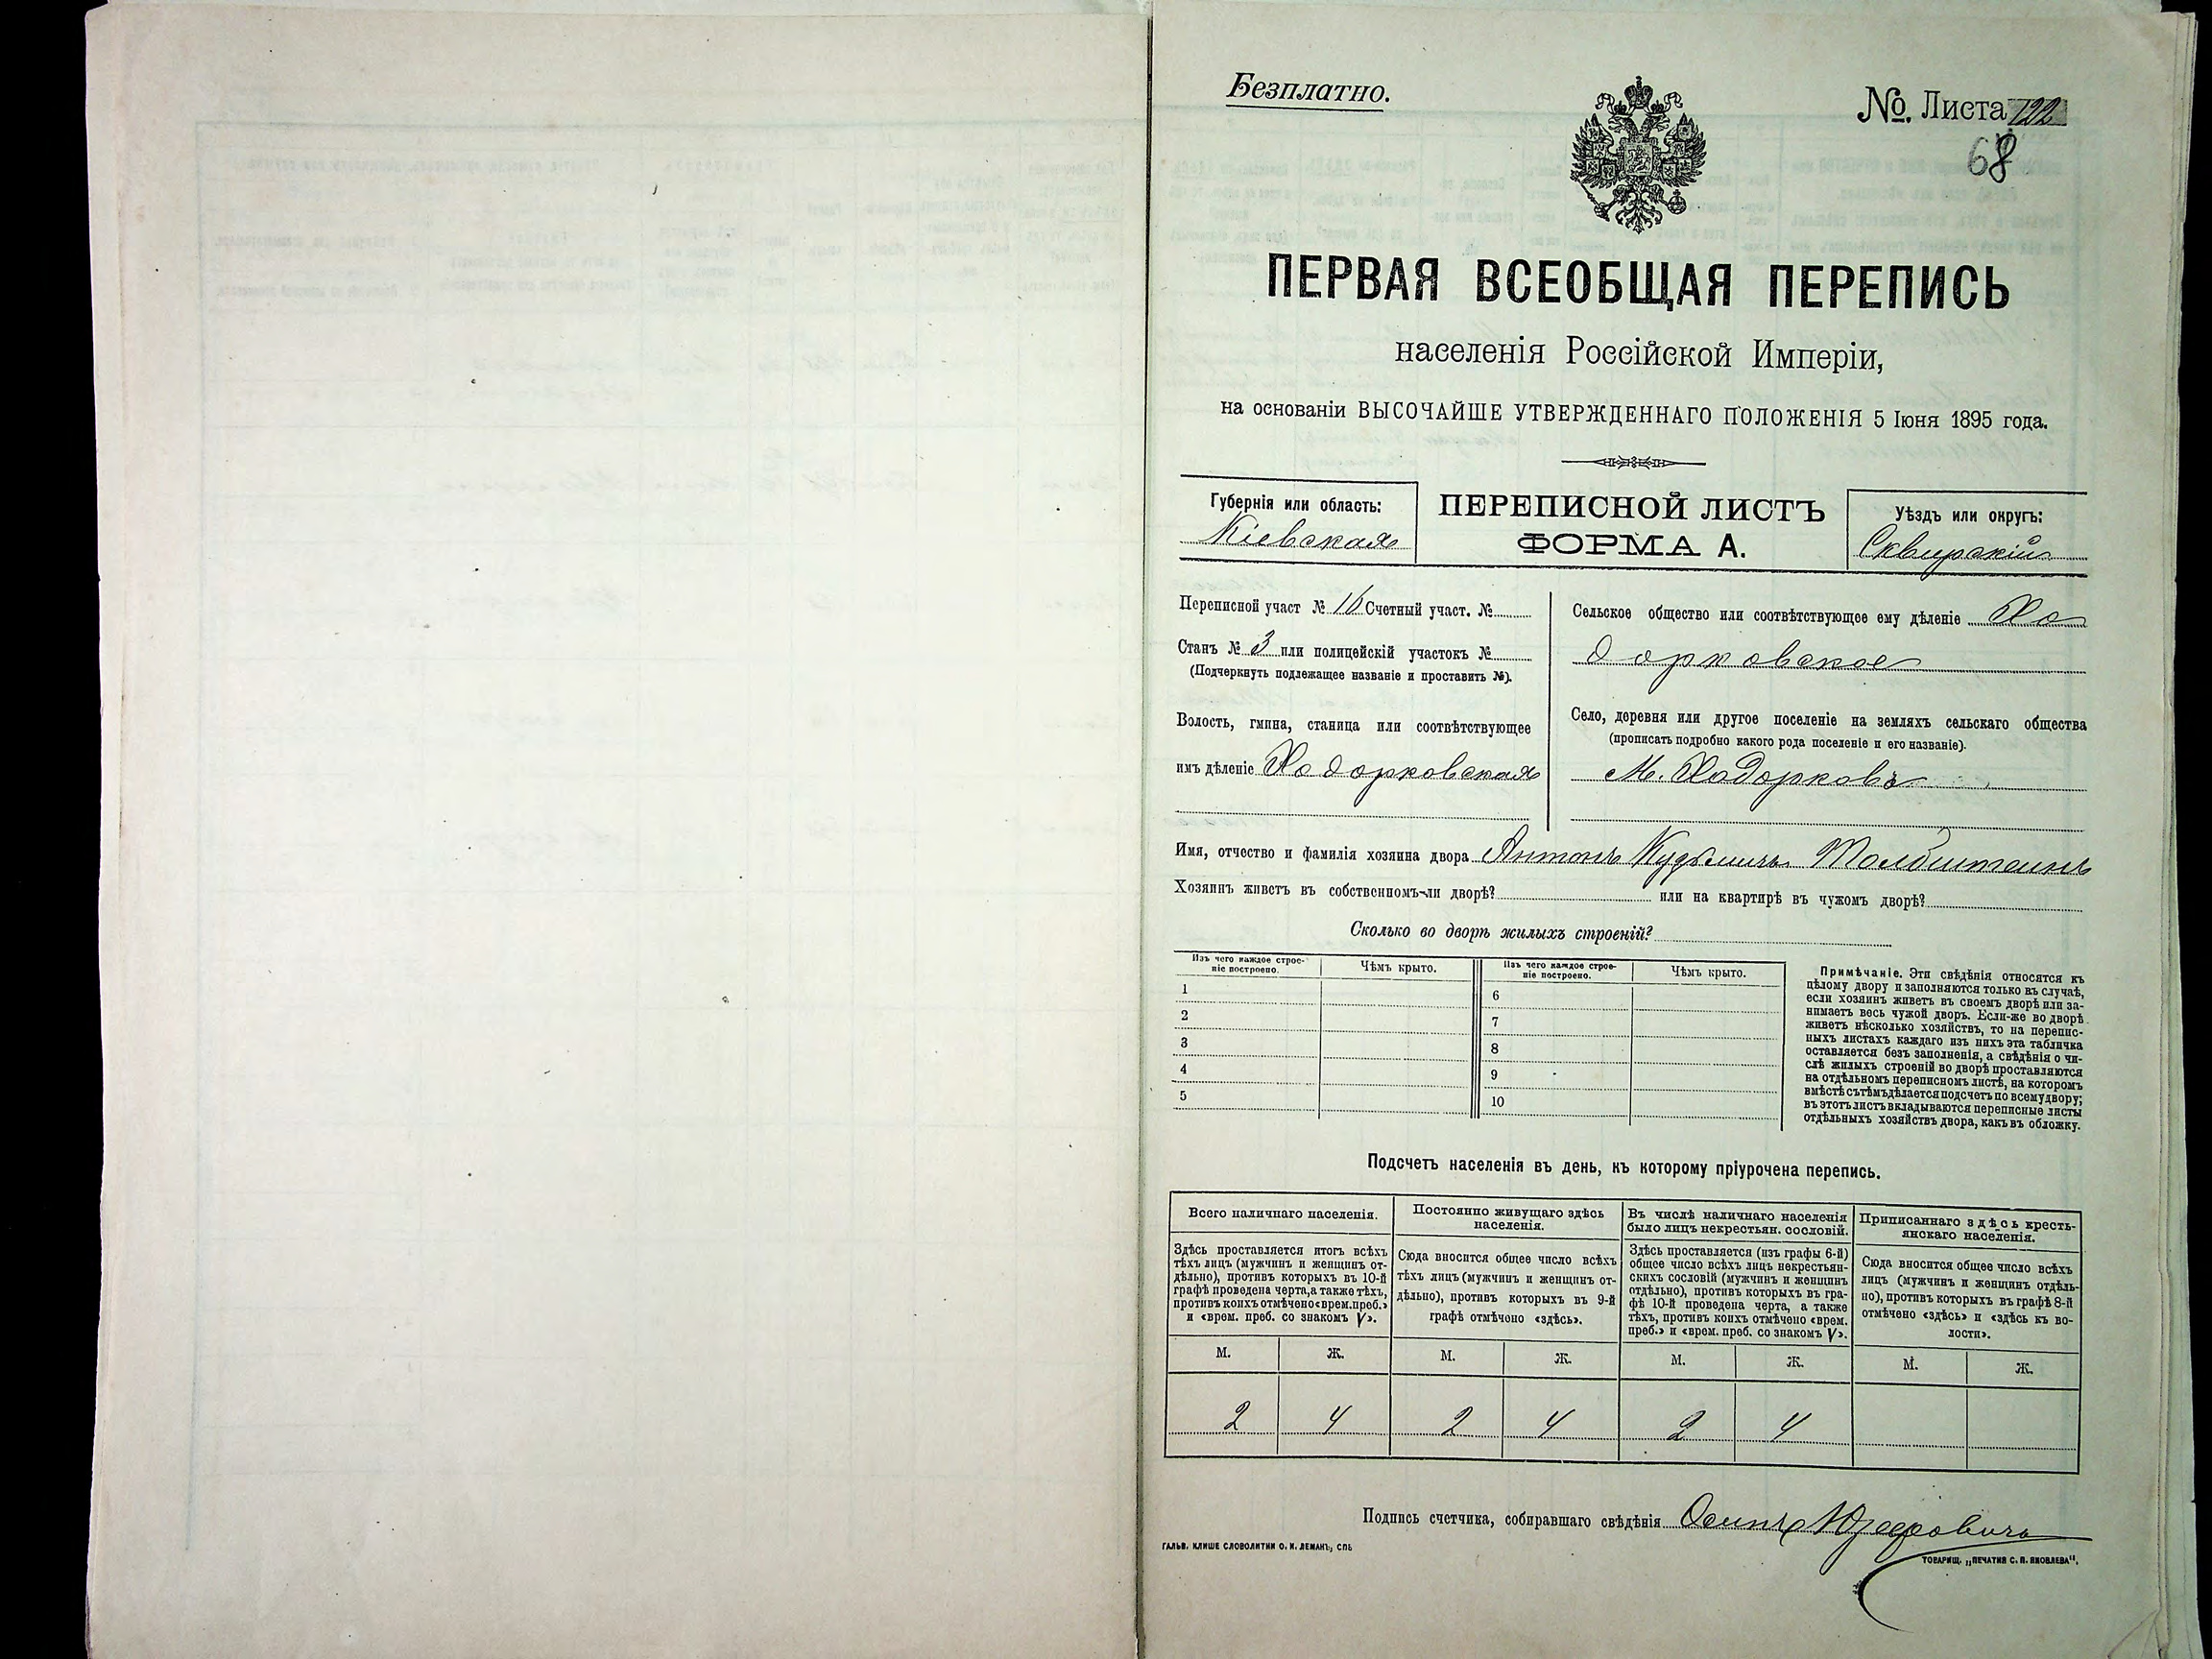 Безплатно.
№. Листа 122
68
ПЕРВАЯ ВСЕОБЩАЯ ПЕРЕПИСЬ
населенія Россійской Имперіи,
на основаніи ВЫСОЧАЙШЕ УТВЕРЖДЕННАГО ПОЛОЖЕНІЯ 5 Іюня 1895 года.
Губернія или область:
Кіевская
ПЕРЕПИСНОЙ ЛИСТЪ
ФОРМА А.
Уѣздъ или округъ:
Сквирскій
Переписной участ № 16 Счетный участ. №
Станъ № 3 или полицейскій участокъ №
(Подчеркнуть подлежащее названіе и проставить №).
Волость, гмина, станица или соотвѣтствующее
имъ дѣленіе Ходорковская
Сельское общество или соотвѣтствующее ему дѣленіе Хо
дорковское
Село, деревня или другое поселеніе на земляхъ сельскаго общества
(прописать подробно какого рода поселеніе и его названіе).
М. Ходорковъ
Имя, отчество и фамилія хозяина двора Антонъ Кузьмичъ
Хозяинъ живетъ въ собственномъ-ли дворѣ? или на квартирѣ въ чужомъ дворѣ?
Сколько во дворѣ жилыхъ строеній?
Изъ чего каждое строе-
ніе построено.
Чѣмъ крыто.
Изъ чего каждое строе-
ніе построено.
Чѣмъ крыто.
1
2
3
4
5
6
7
8
9
10
Примѣчаніе. Эти свѣдѣнія относятся къ
цѣлому двору и заполняются только въ случаѣ,
если хозяинъ живетъ въ своемъ дворѣ или за-
нимаетъ весь чужой дворъ. Если-же во дворѣ
живетъ нѣсколько хозяйствъ, то на перепис-
ныхъ листахъ каждаго изъ нихъ эта табличка
оставляется безъ заполненія, а свѣдѣнія о чи-
слѣ жилыхъ строеній во дворѣ проставляются
на отдѣльномъ переписномъ листѣ, на которомъ
вмѣстѣ съ тѣмъ дѣлается подсчетъ по всему двору;
въ этотъ листъ вкладываются переписные листы
отдѣльныхъ хозяйствъ двора, какъ въ обложку.
Подсчетъ населенія въ день, къ которому пріурочена перепись.
Всего наличнаго населенія.
Здѣсь проставляется итогъ всѣхъ
тѣхъ лицъ (мужчинъ и женщинъ от-
дѣльно), противъ которыхъ въ 10-й
графѣ проведена черта, а также тѣхъ,
противъ коихъ отмѣчено «врем. преб.»
и «врем. преб. со знакомъ V».
Постоянно живущаго здѣсь
населенія.
Сюда вносится общее число всѣхъ
тѣхъ лицъ (мужчинъ и женщинъ от-
дѣльно), противъ которыхъ въ 9-й
графѣ отмѣчено «здѣсь».
Въ числѣ наличнаго населенія
было лицъ некрестьян. сословій.
Здѣсь проставляется (изъ графы 6-й)
общее число всѣхъ лицъ некрестьян-
скихъ сословій (мужчинъ и женщинъ
отдѣльно), противъ которыхъ въ гра-
фѣ 10-й проведена черта, а также
тѣхъ, противъ коихъ отмѣчено «врем.
преб.» и «врем. преб. со знакомъ V».
Приписаннаго здѣсь кресть-
янскаго населенія.
Сюда вносится общее число всѣхъ
лицъ (мужчинъ и женщинъ отдѣль-
но), противъ которыхъ въ графѣ 8-й
отмѣчено «здѣсь» и «здѣсь къ во-
лости».
М. Ж. М. Ж. М. Ж. М. Ж.
2 4 2 4 2 4
Подпись счетчика, собиравшаго свѣдѣнія Осипъ
ГАЛЬВ. КЛИШЕ СЛОВОЛИТНИ О. И. ЛЕМАНЪ, СПБ
ТОВАРИЩ. „ПЕЧАТНЯ С. П. ЯКОВЛЕВА".